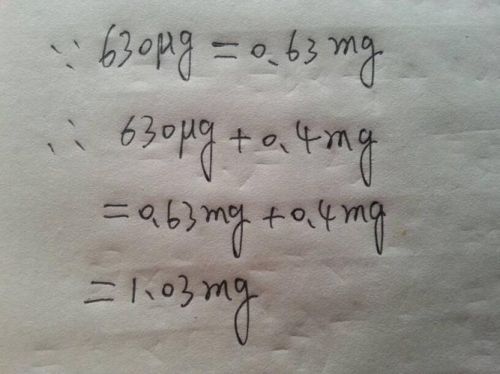 ∵ 630μg = 0.63mg
∴ 630μg + 0.4mg
= 0.63mg + 0.4mg
= 1.03mg